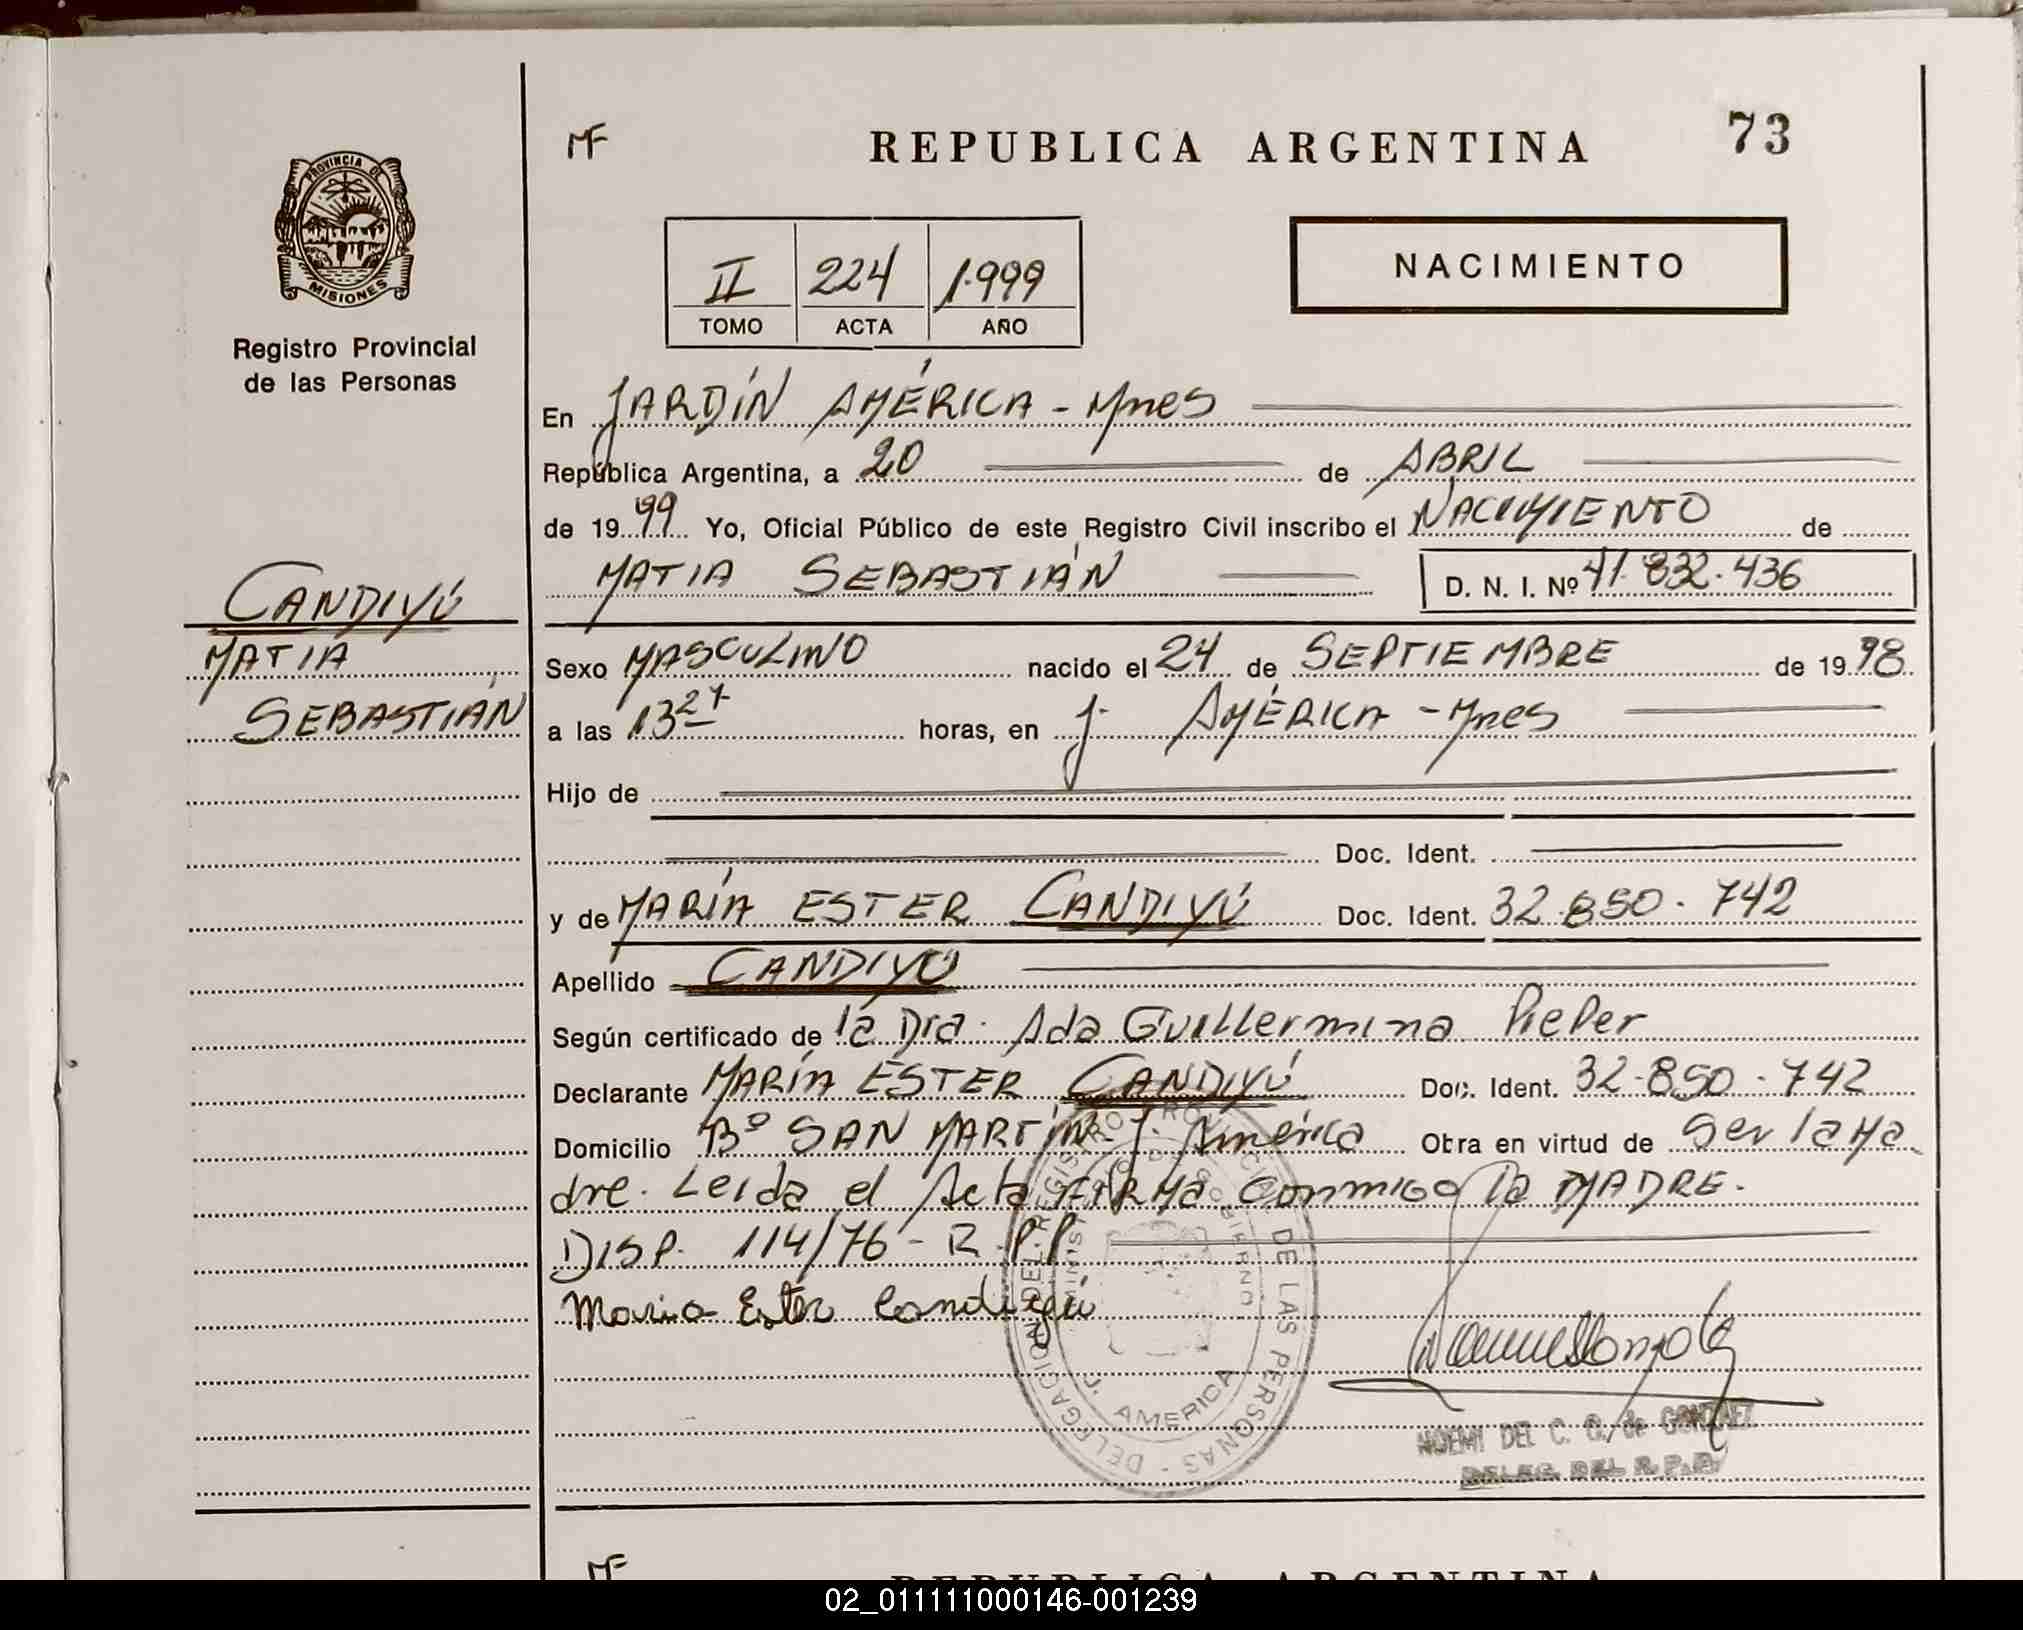 MF
REPUBLICA ARGENTINA
73
PROVINCIA DE
MISIONES
Registro Provincial
de las Personas
II 224 1.999
TOMO ACTA AÑO
NACIMIENTO
En JARDÍN AMÉRICA - Mnes
República Argentina, a 20 de ABRIL
de 1999 Yo, Oficial Público de este Registro Civil inscribo el NACIMIENTO de
MATIA SEBASTIÁN D. N. I. Nº 41.832.436
CANDIYÚ
MATIA
SEBASTIÁN
Sexo MASCULINO nacido el 24 de SEPTIEMBRE de 1998
a las 13 27 horas, en J. AMÉRICA - Mnes
Hijo de
Doc. Ident.
y de MARÍA ESTER CANDIYÚ Doc. Ident. 32.850.742
Apellido CANDIYÚ
Según certificado de la Dra. Ada Guillermina Pieper
Declarante MARÍA ESTER CANDIYÚ Doc. Ident. 32.850.742
Domicilio Bº SAN MARTÍN J. América Obra en virtud de ser la Ma
dre. Leida el Acta FIRMA Conmigo la MADRE.
DISP. 114/76 - R.P.P.
Maria Ester Candiyú
DELEGACION DEL REGISTRO PROVINCIAL DE LAS PERSONAS
MINISTERIO DE GOBIERNO
J. AMERICA
NOEMI DEL C. G. de GONZALEZ
DELEG. DEL R.P.P.
MF
REPUBLICA ARGENTINA
02_011111000146-001239